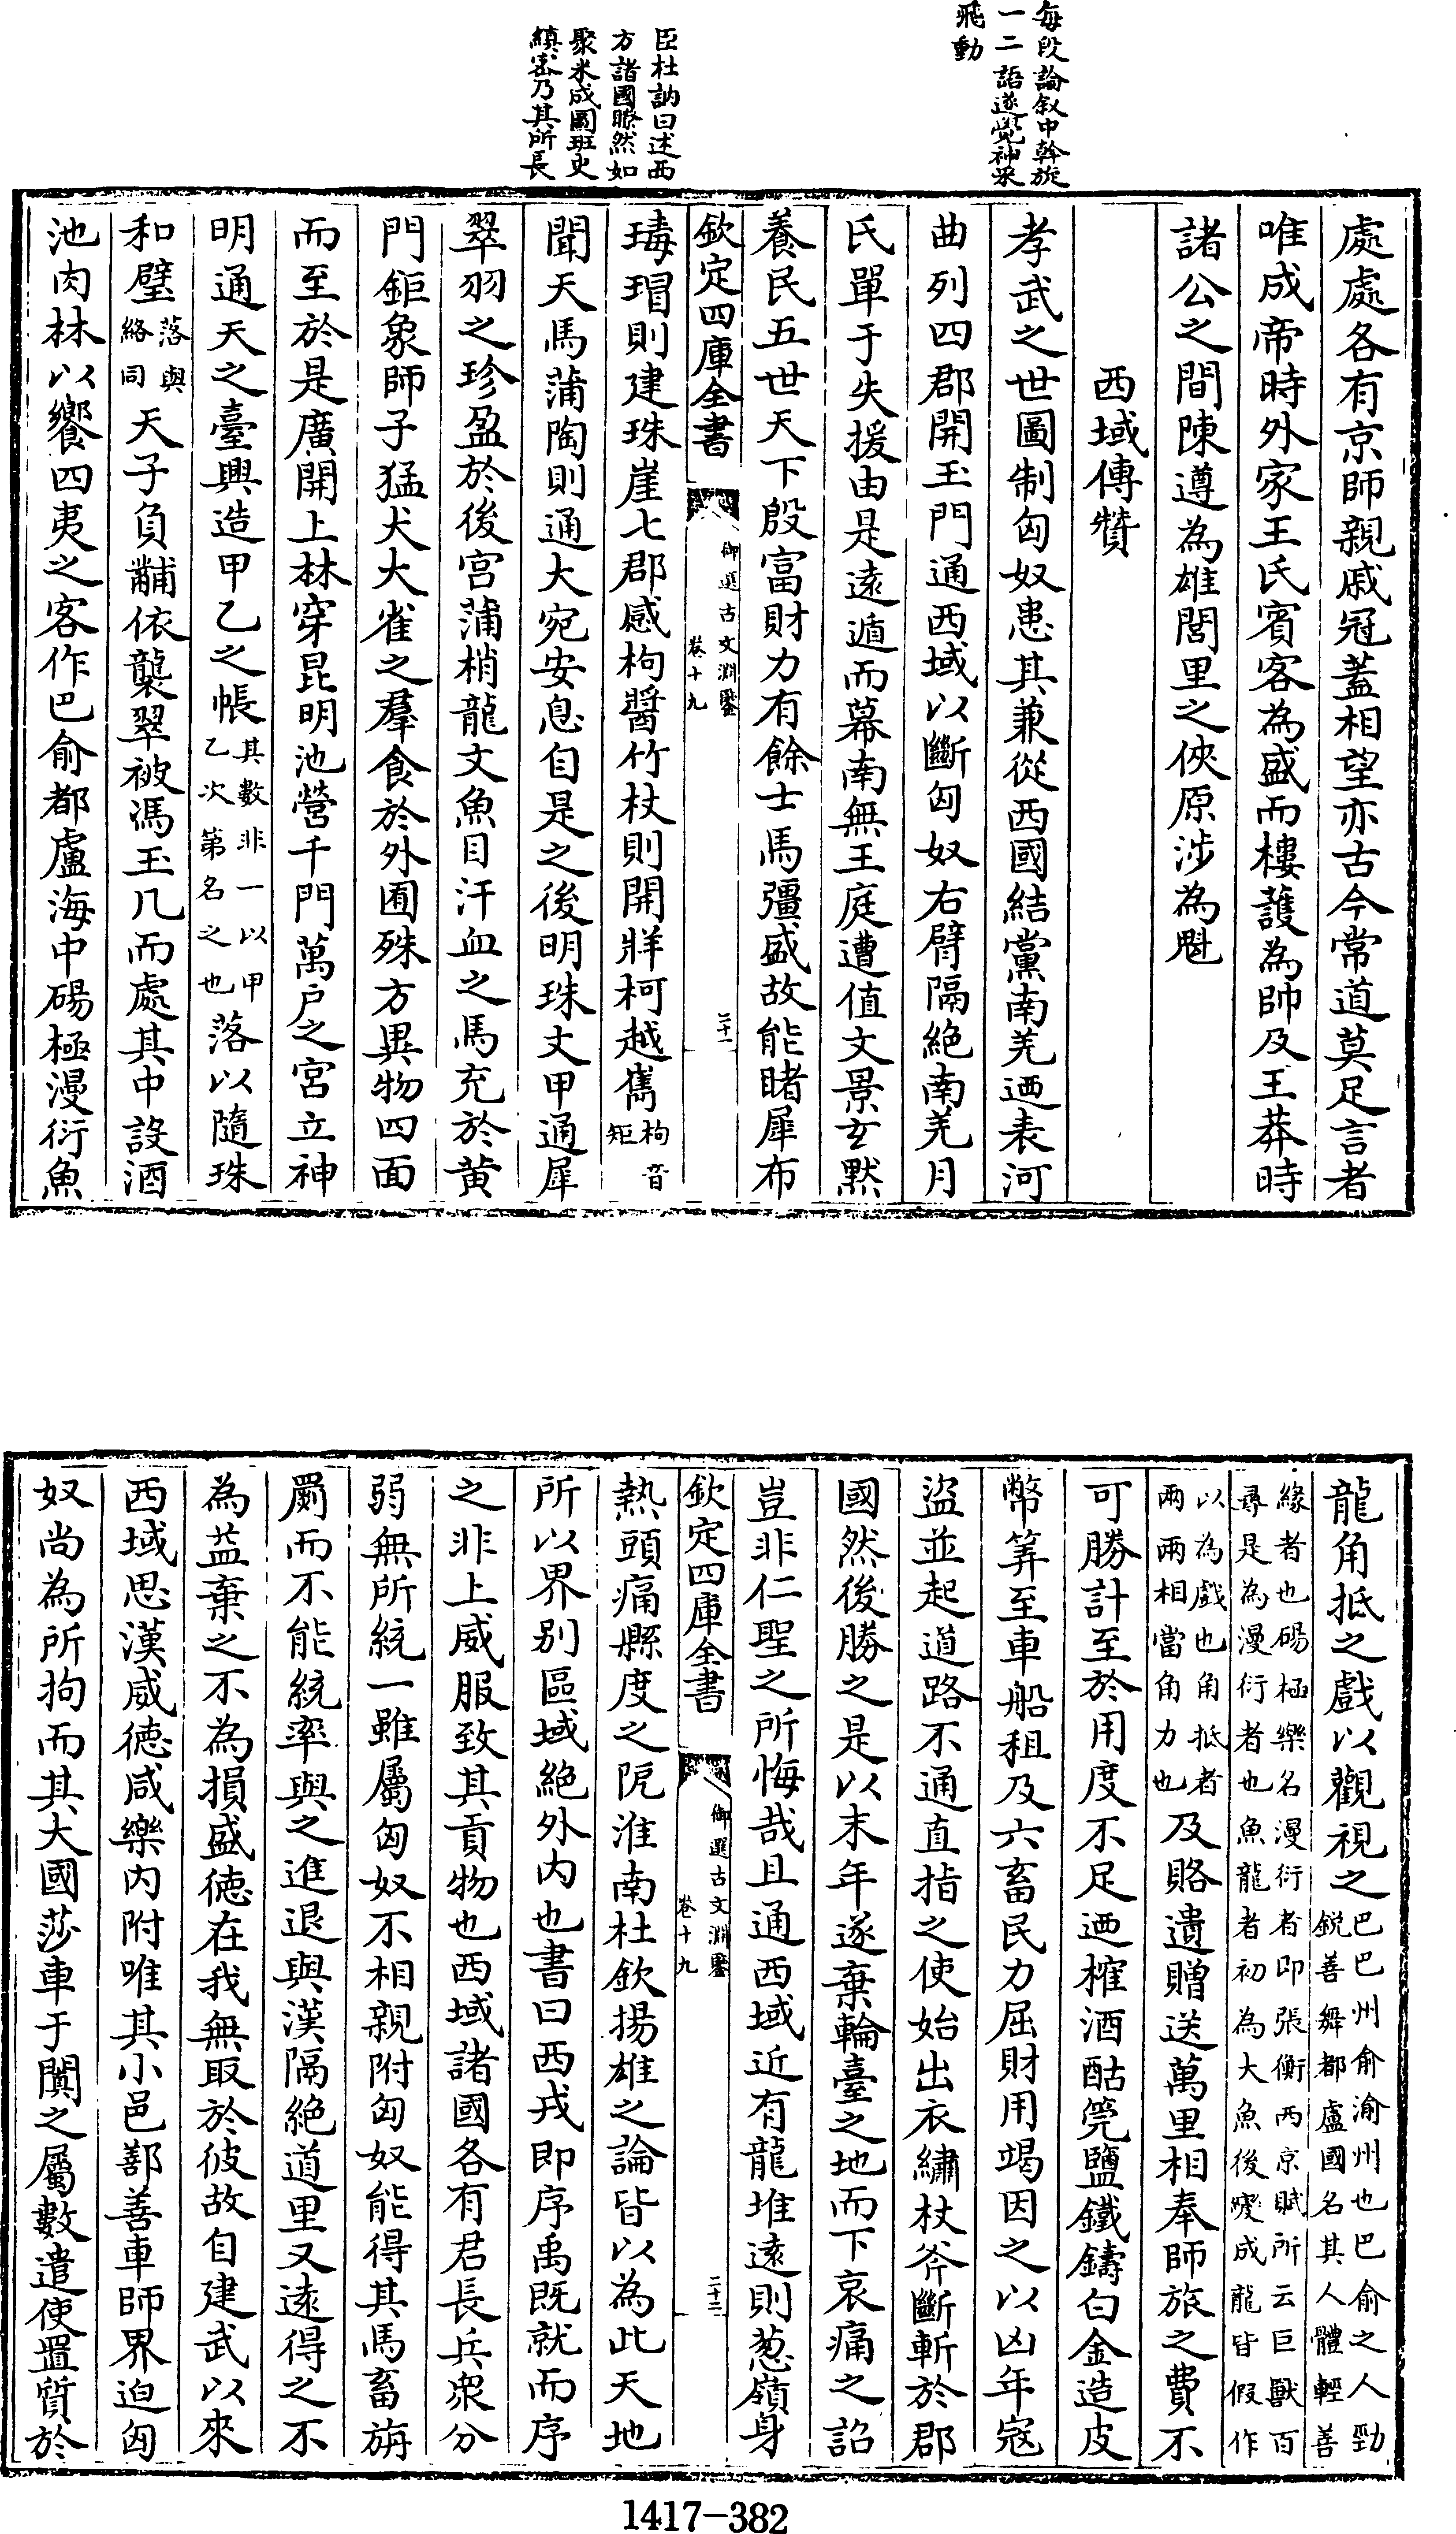 每段論叙中斡旋
一二語遂覺神采
飛動
臣杜訥曰述西
方諸國瞭然如
聚米成圖班史
縝密乃其所長
處處各有京師親戚冠蓋相望亦古今常道莫足言者
唯成帝時外家王氏賓客為盛而樓護為帥及王莽時
諸公之間陳遵為雄閭里之俠原涉為魁
西域傳贊
孝武之世圖制匈奴患其兼從西國結黨南羌迺表河
曲列四郡開玉門通西域以斷匈奴右臂隔絶南羌月
氏單于失援由是逺遁而幕南無王庭遭值文景玄默
養民五世天下殷富財力有餘士馬彊盛故能睹犀布
欽定四庫全書
御選古文淵鑒
卷十九
二十一
瑇瑁則建珠崖七郡感枸醬竹杖則開牂柯越嶲枸音
矩
聞天馬蒲陶則通大宛安息自是之後明珠文甲通犀
翠羽之珍盈於後宫蒲梢龍文魚目汗血之馬充於黄
門鉅象師子猛犬大雀之羣食於外囿殊方異物四面
而至於是廣開上林穿昆明池營千門萬户之宮立神
明通天之臺興造甲乙之帳其數非一以甲
乙次第名之也落以隨珠
和璧落與
絡同天子負黼依襲翠被馮玉几而處其中設酒
池肉林以饗四夷之客作巴俞都盧海中碭極漫衍魚
龍角抵之戲以觀視之巴巴州俞渝州也巴俞之人勁
鋭善舞都盧國名其人體輕善
緣者也碭極樂名漫衍者即張衡西京賦所云巨獸百
尋是為漫衍者也魚龍者初為大魚後變成龍皆假作
以為戲也角抵者
兩兩相當角力也及賂遺贈送萬里相奉師旅之費不
可勝計至於用度不足迺榷酒酤筦鹽鐵鑄白金造皮
幣筭至車船租及六畜民力屈財用竭因之以凶年寇
盜並起道路不通直指之使始出衣繡杖斧斷斬於郡
國然後勝之是以末年遂棄輪臺之地而下哀痛之詔
豈非仁聖之所悔哉且通西域近有龍堆逺則葱嶺身
欽定四庫全書
御選古文淵鑒
卷十九
二十二
熱頭痛縣度之阸淮南杜欽揚雄之論皆以為此天地
所以界别區域絶外内也書曰西戎即序禹既就而序
之非上威服致其貢物也西域諸國各有君長兵衆分
弱無所統一雖屬匈奴不相親附匈奴能得其馬畜旃
罽而不能統率與之進退與漢隔絶道里又逺得之不
為益棄之不為損盛德在我無取於彼故自建武以來
西域思漢威德咸樂内附唯其小邑鄯善車師界迫匈
奴尚為所拘而其大國莎車于闐之屬數遣使置質於
1417-382